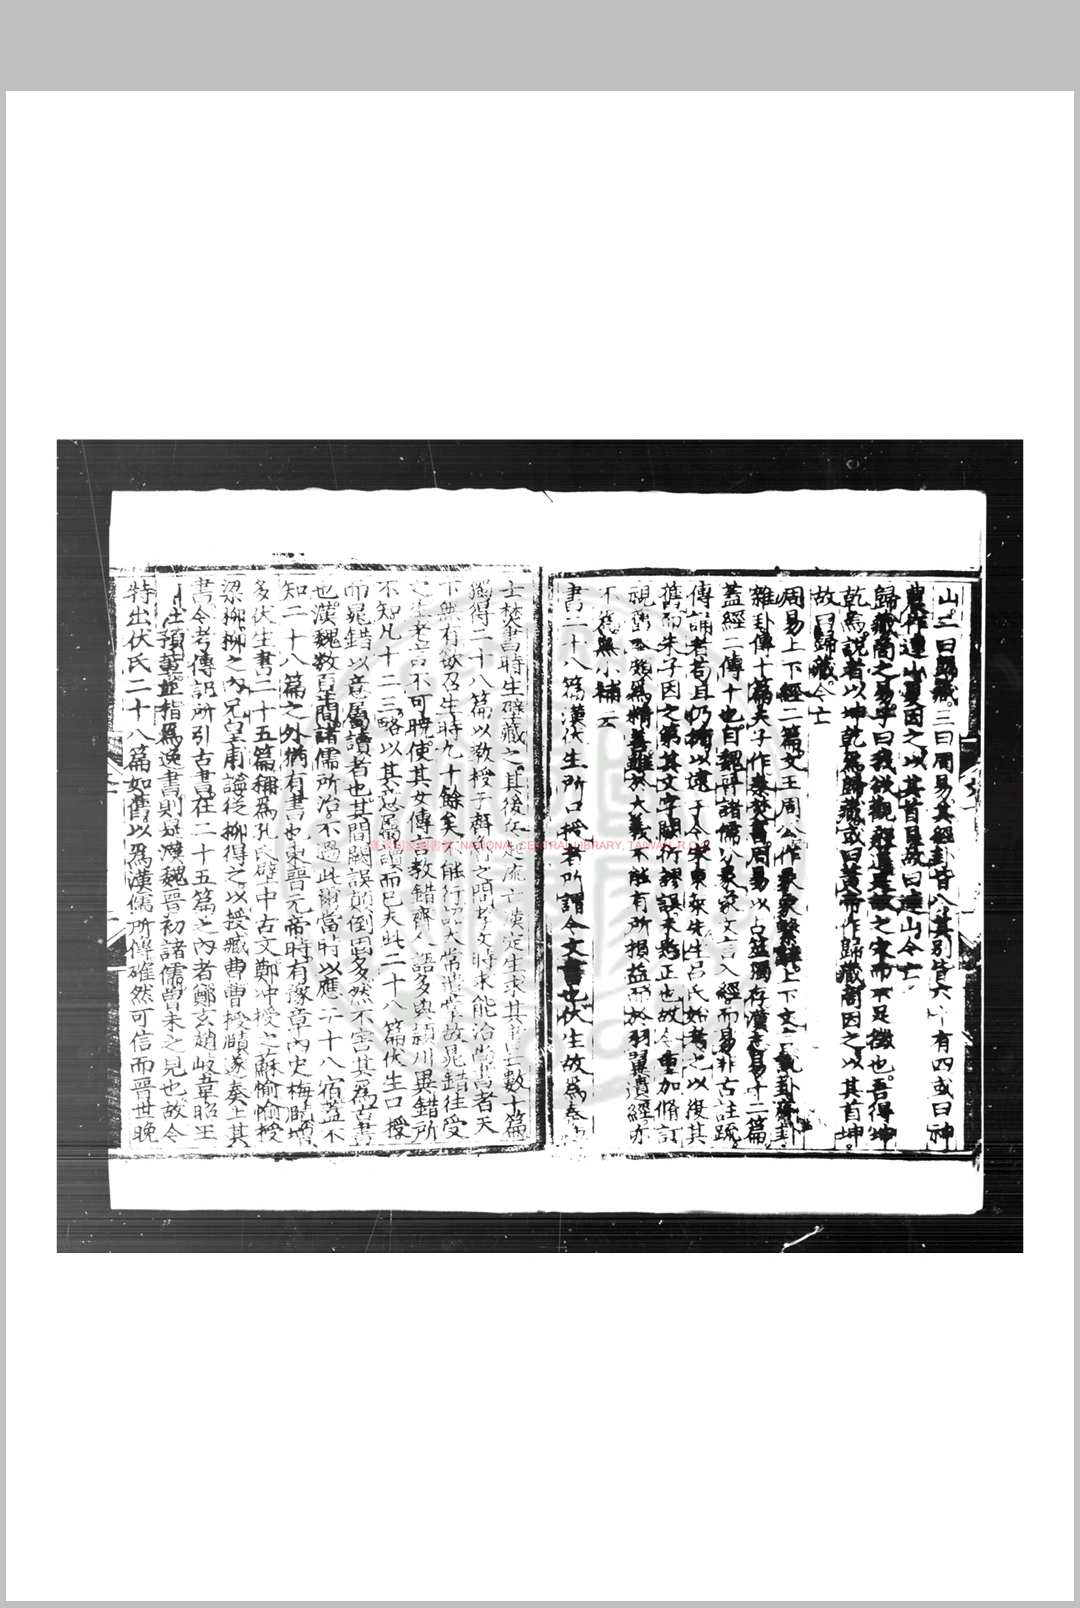 山二曰歸藏三曰周易其經卦皆八其別皆六十有四或曰神
農作連山夏因之以其首艮故曰連山今亡
歸藏商之易子曰我欲觀殷道是故之宋而不足徵也吾得坤
乾焉說者以坤乾為歸藏或曰黃帝作歸藏商因之以其首坤
故曰歸藏今亡
周易上下經二篇文王周公作彖象繫辭上下文言說卦序卦
雜卦傳十篇夫子作秦焚書周易以占筮獨存漢志易十二篇
蓋經二傳十也自魏晉諸儒分彖象文言入經而易非古註疏
傳誦者苟且仍循以逮于今宋東萊先生呂氏始考之以復其
舊而朱子因之第其文字闕衍謬誤未悉正也故今重加脩訂
視舊本頗為精善雖於大義不能有所損益而於羽翼遺經亦
不為無小補云
書二十八篇漢伏生所口授者所謂今文書也伏生故為秦博
士焚書時生壁藏之其後兵起流亡漢定生求其書亡數十篇
獨得二十八篇以教授于齊魯之間孝文時求能治尚書者天
下無有欲召生時九十餘矣不能行詔太常遣掌故晁錯往受
之生老言不可曉使其女傳言教錯齊人語多與潁川異錯所
不知凡十二三略以其意屬讀而已夫此二十八篇伏生口授
而晁錯以意屬讀者也其間闕誤顛倒固多然不害其為古書
也漢魏數百年間諸儒所治不過此爾當時以應二十八宿蓋不
知二十八篇之外猶有書也東晉元帝時有豫章內史梅賾增
多伏生書二十五篇稱為孔氏壁中古文鄭沖授之蘇愉愉授
梁柳柳之內兄皇甫謐從柳得之以授臧曹曹授賾賾遂奏上其
書今考傳記所引古書在二十五篇之內者鄭玄趙岐韋昭王
肅杜預輩並指為逸書則是漢魏晉初諸儒曾未之見也故今
特出伏氏二十八篇如舊以為漢儒所傳確然可信而晉世晚
NATIONAL CENTRAL LIBRARY, TAIWAN, R.O.C